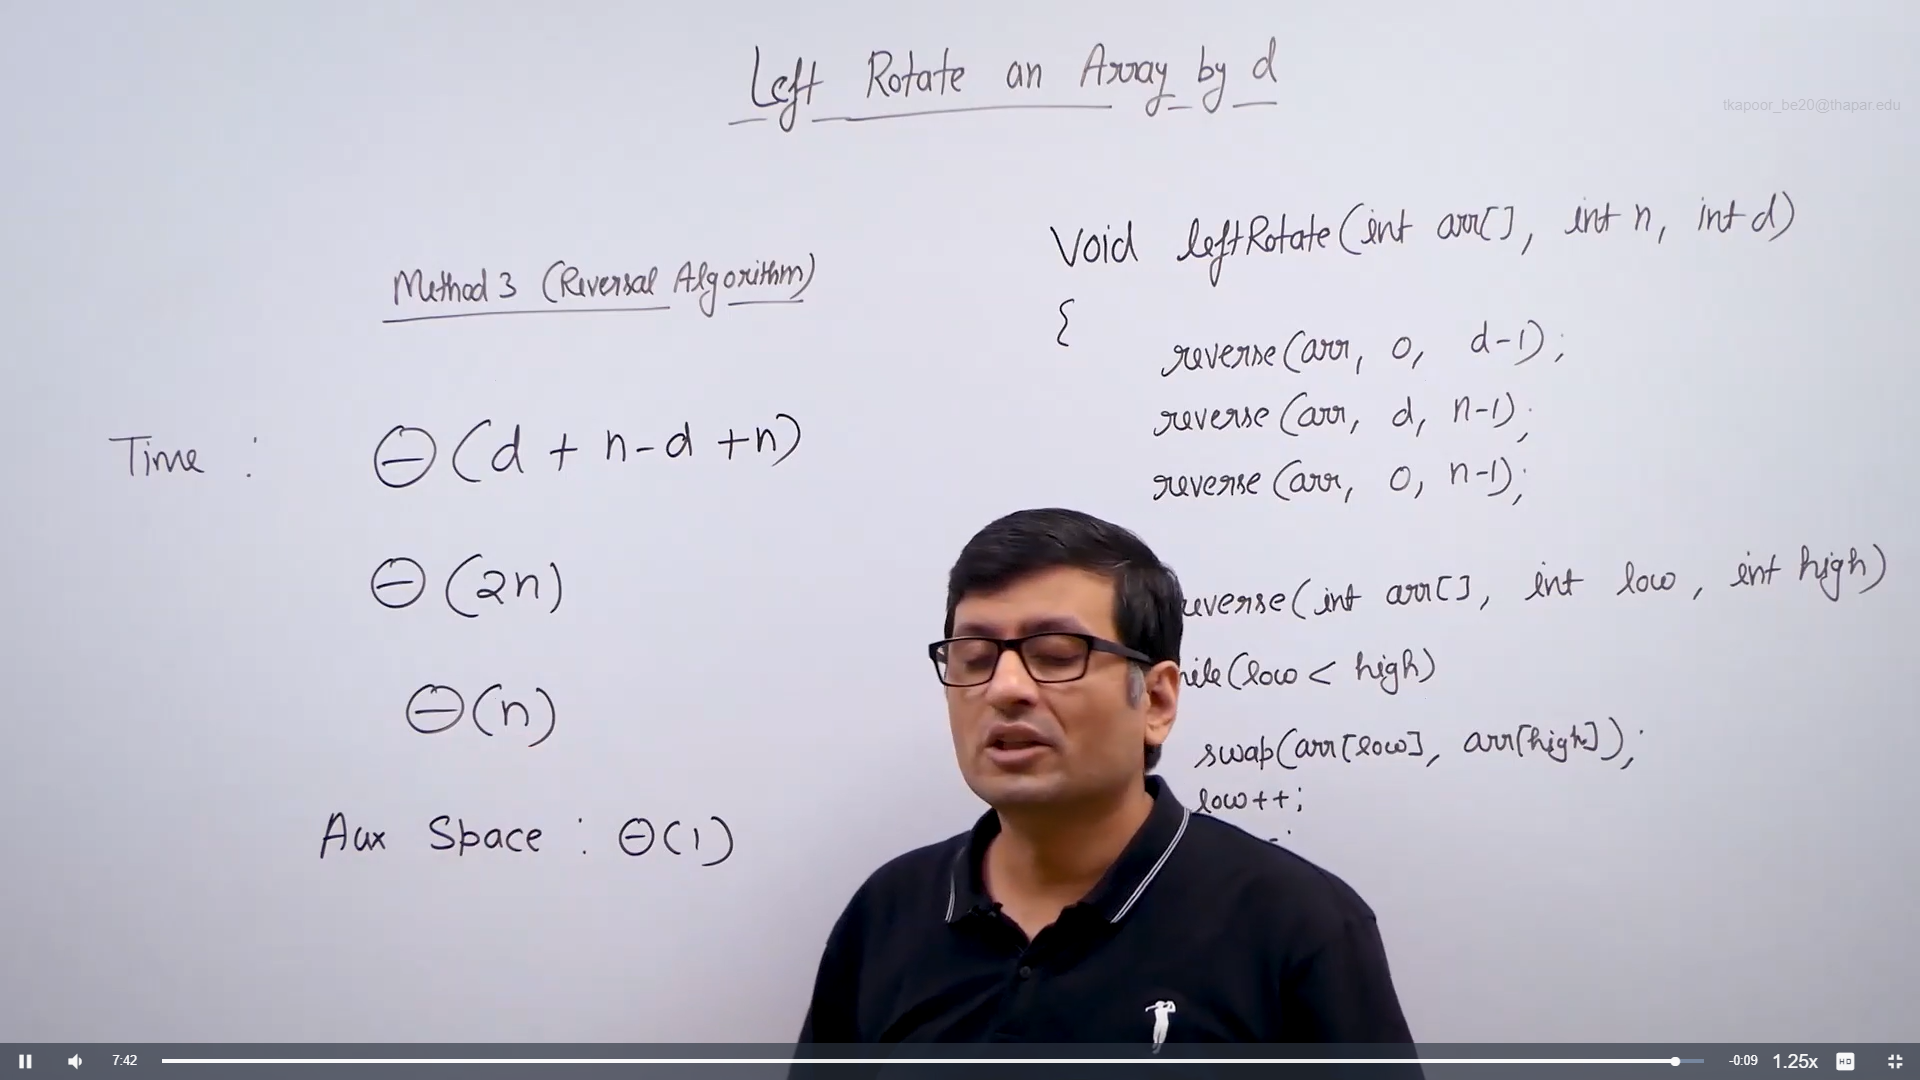 Left Rotate an Array by d
tkapoor_be20@thapar.edu
Method 3 (Reversal Algorithm)
Time :
Θ(d + n-d +n)
Θ(2n)
Θ(n)
Aux Space : Θ(1)
Void leftRotate(int arr[], int n, int d)
{
reverse(arr, 0, d-1);
reverse(arr, d, n-1);
reverse(arr, 0, n-1);
everse(int arr[], int low, int high)
ile(low < high)
swap(arr[low], arr[high]);
low++;
7:42
-0:09
1.25x
HD